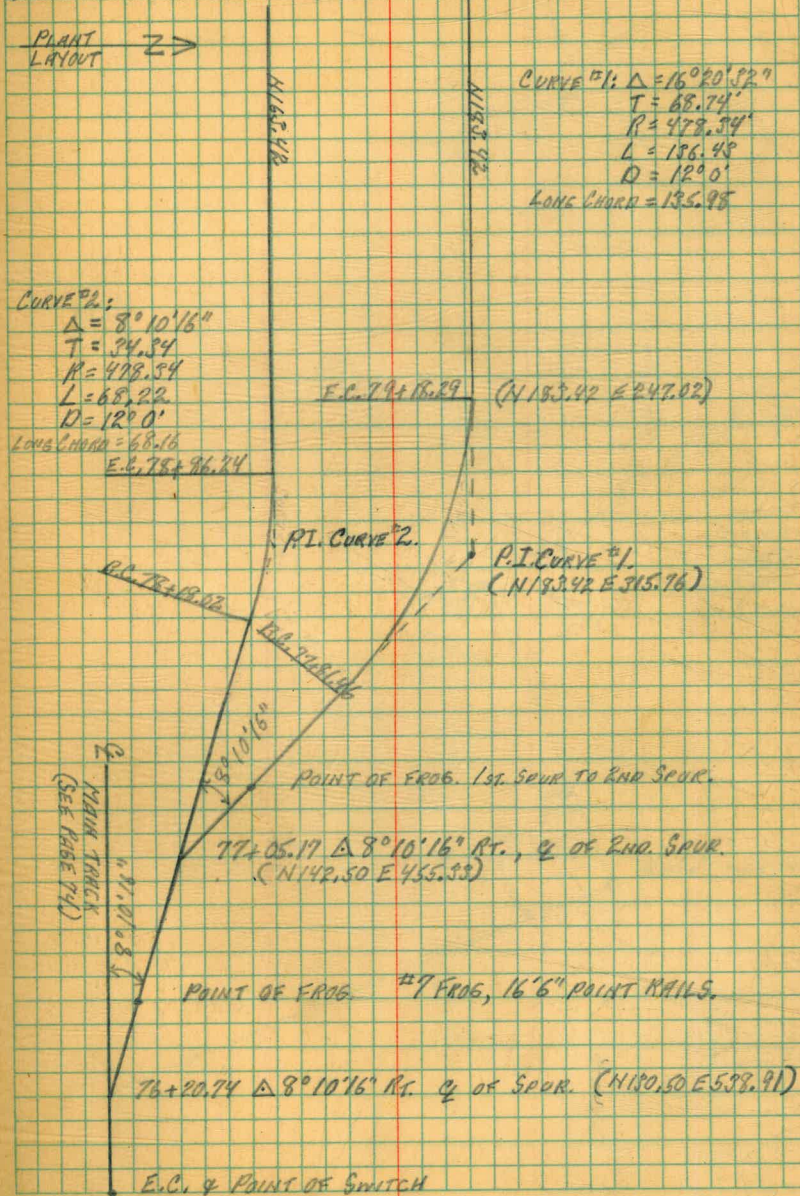 PLANT
LAYOUT
Z
N163.42
N183.42
CURVE #1: Δ = 16°20'32"
T = 68.74'
R = 478.34'
L = 136.43
D = 12°0'
LONG CHORD = 135.98
CURVE #2:
Δ = 8°10'16"
T = 34.34
R = 478.34
L = 68.22
D = 12°0'
LONG CHORD = 68.16
E.C. 79+18.29 (N183.42 E247.02)
E.C. 78+86.24
P.I. CURVE #2.
P.I. CURVE #1.
(N183.42 E315.76)
B.C. 78+18.02
B.C. 77+81.86
8°10'16"
POINT OF FROG. 1ST. SPUR TO 2ND SPUR.
77+05.17 Δ 8°10'16" RT., ℄ OF 2ND. SPUR.
(N142.50 E455.33)
℄
MAIN TRACK
(SEE PAGE 74)
8°10'16"
POINT OF FROG. #7 FROG, 16'6" POINT RAILS.
76+20.74 Δ 8°10'16" RT. ℄ OF SPUR. (N130.50 E538.91)
E.C. & POINT OF SWITCH